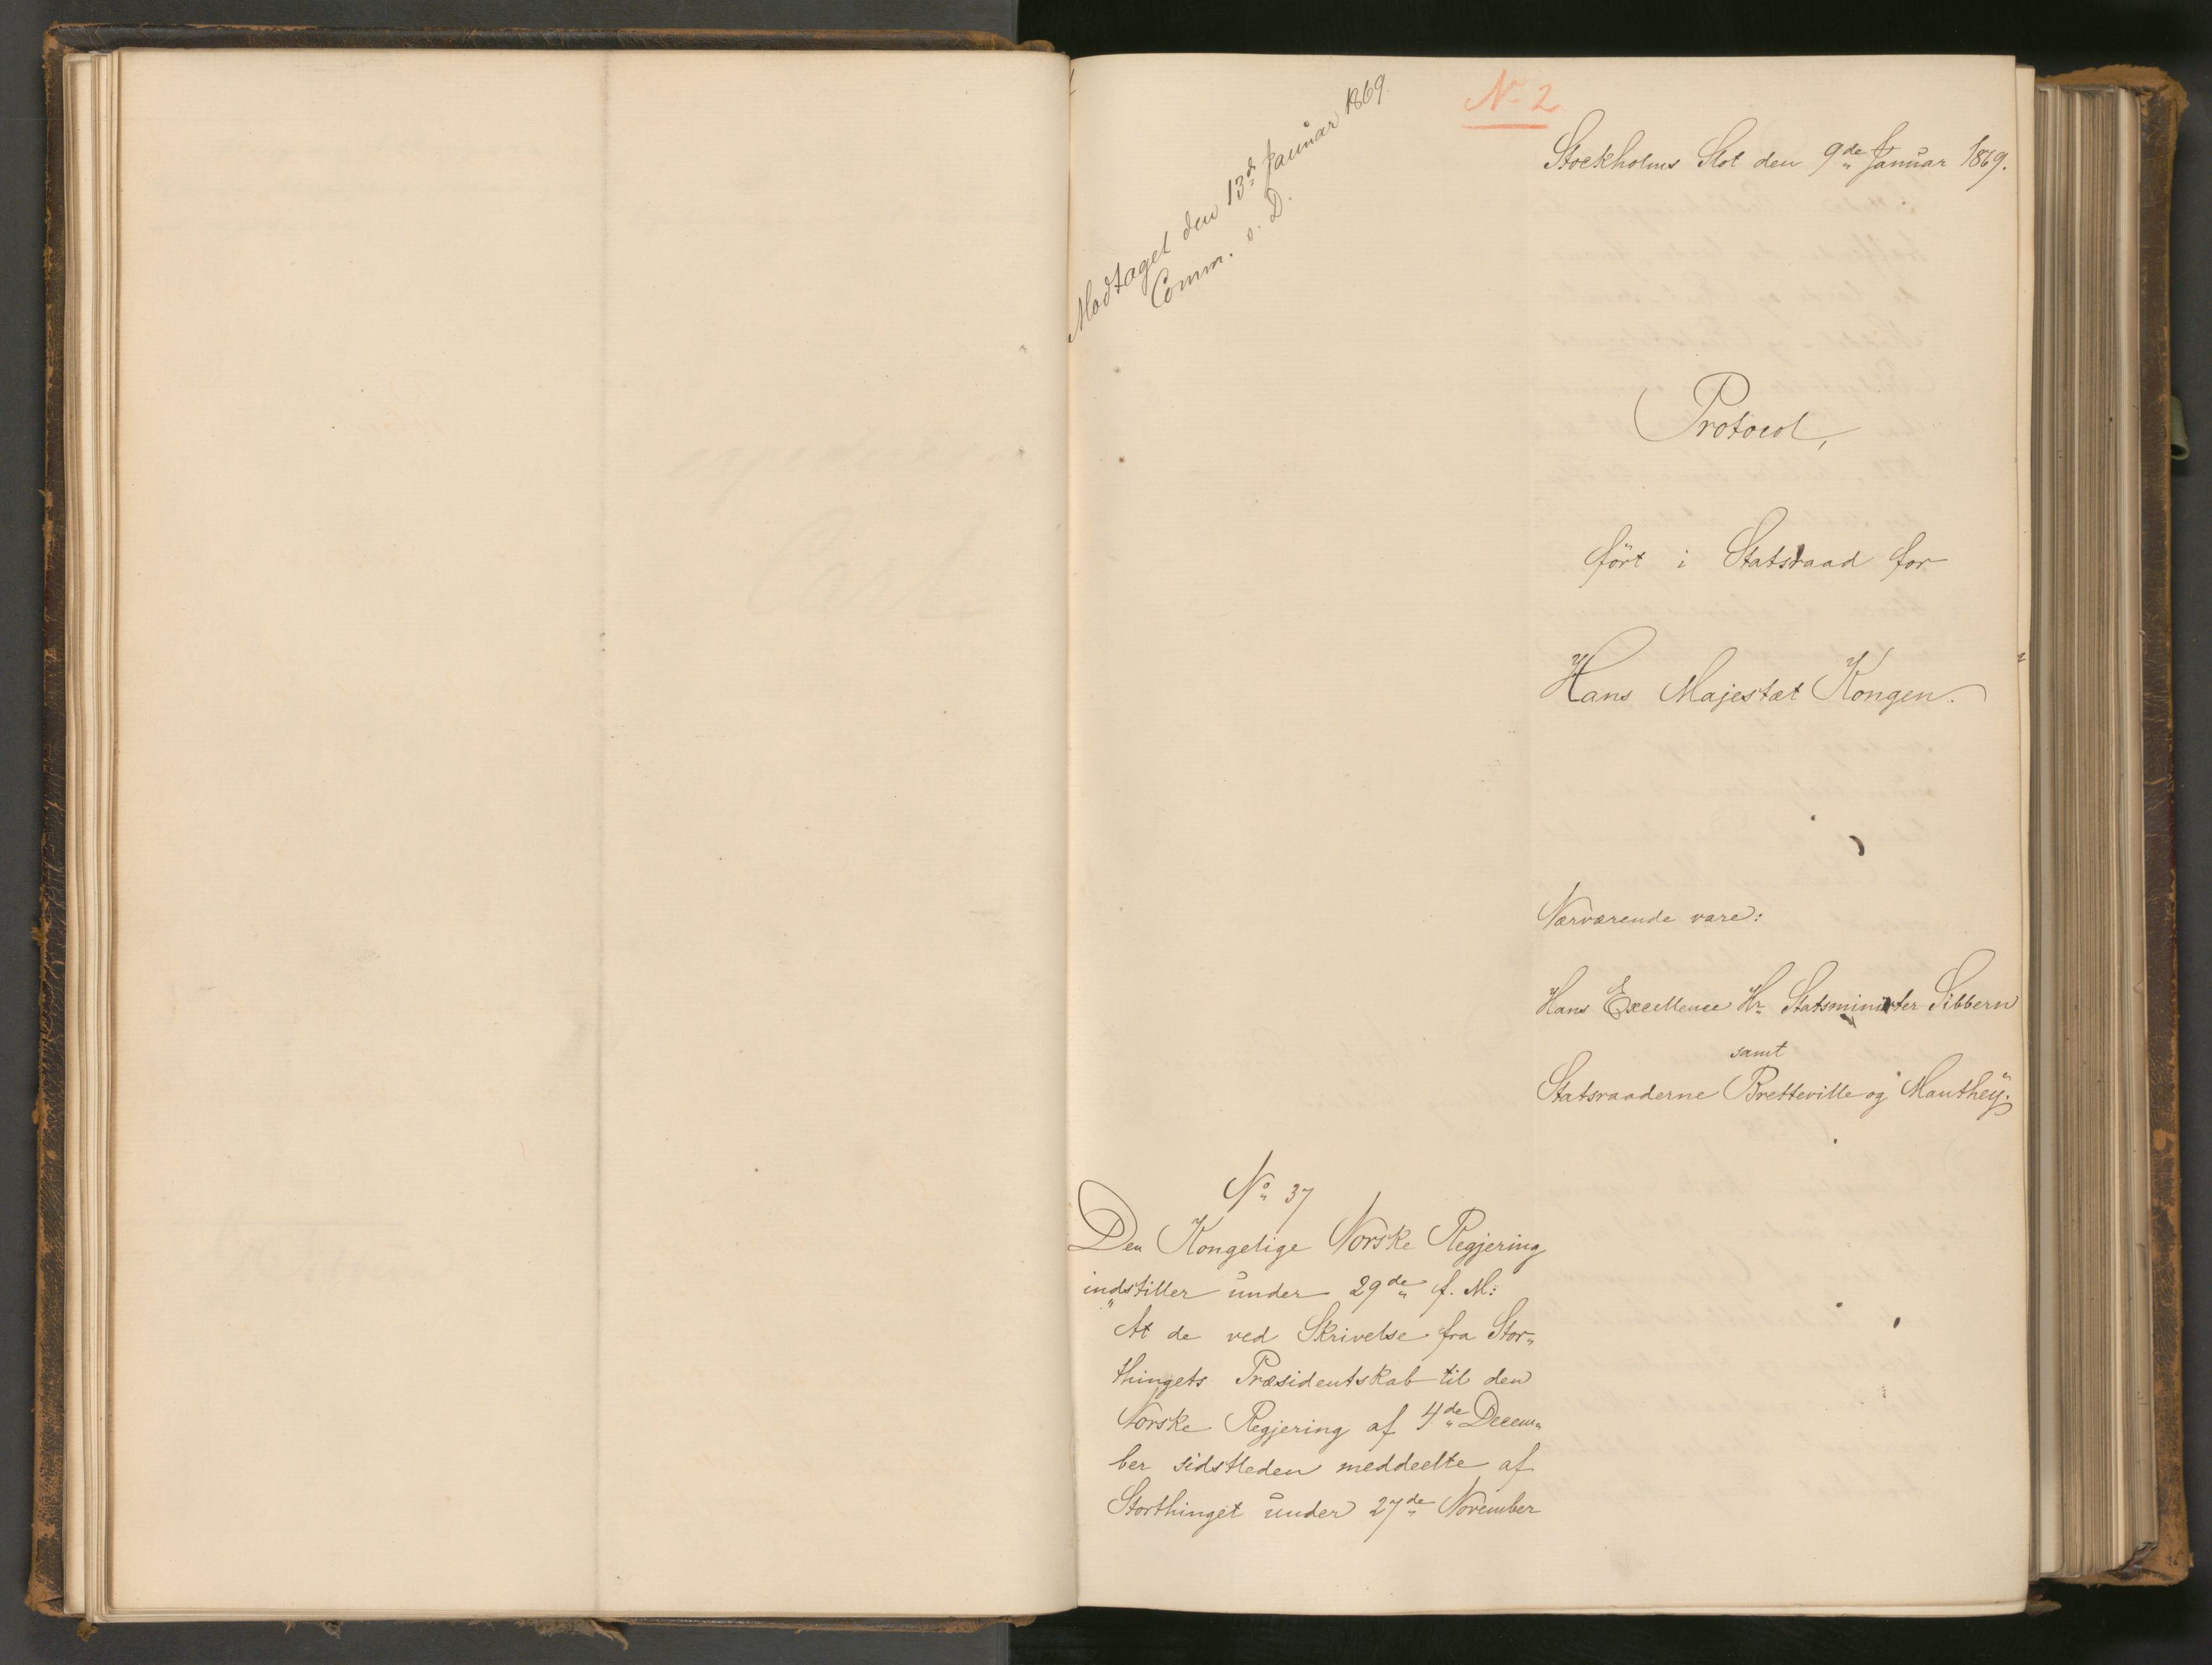 Modtaget den 13de Januar 1869.
Comm. s. D.
N. 2
Stockholms Slot den 9de Januar 1869.
Protocol,
ført i Statsraad for
Hans Majestæt Kongen.
Nærværende vare:
Hans Excellence Hr. Statsminister Sibbern
samt
Statsraaderne Bretteville og Manthey.
No 37
Den Kongelige Norske Regjering
indstiller under 29de f. M:
"At de ved Skrivelse fra Stor-
thingets Præsidentskab til den
Norske Regjering af 4de Decem-
ber sidstleden meddeelte af
Storthinget under 27de November